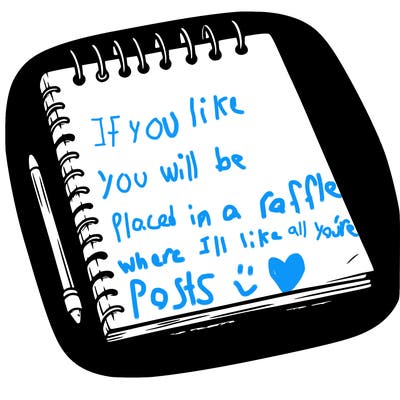 If you like
You will be
Placed in a raffle
where I'll like all you're
Posts :) ♥